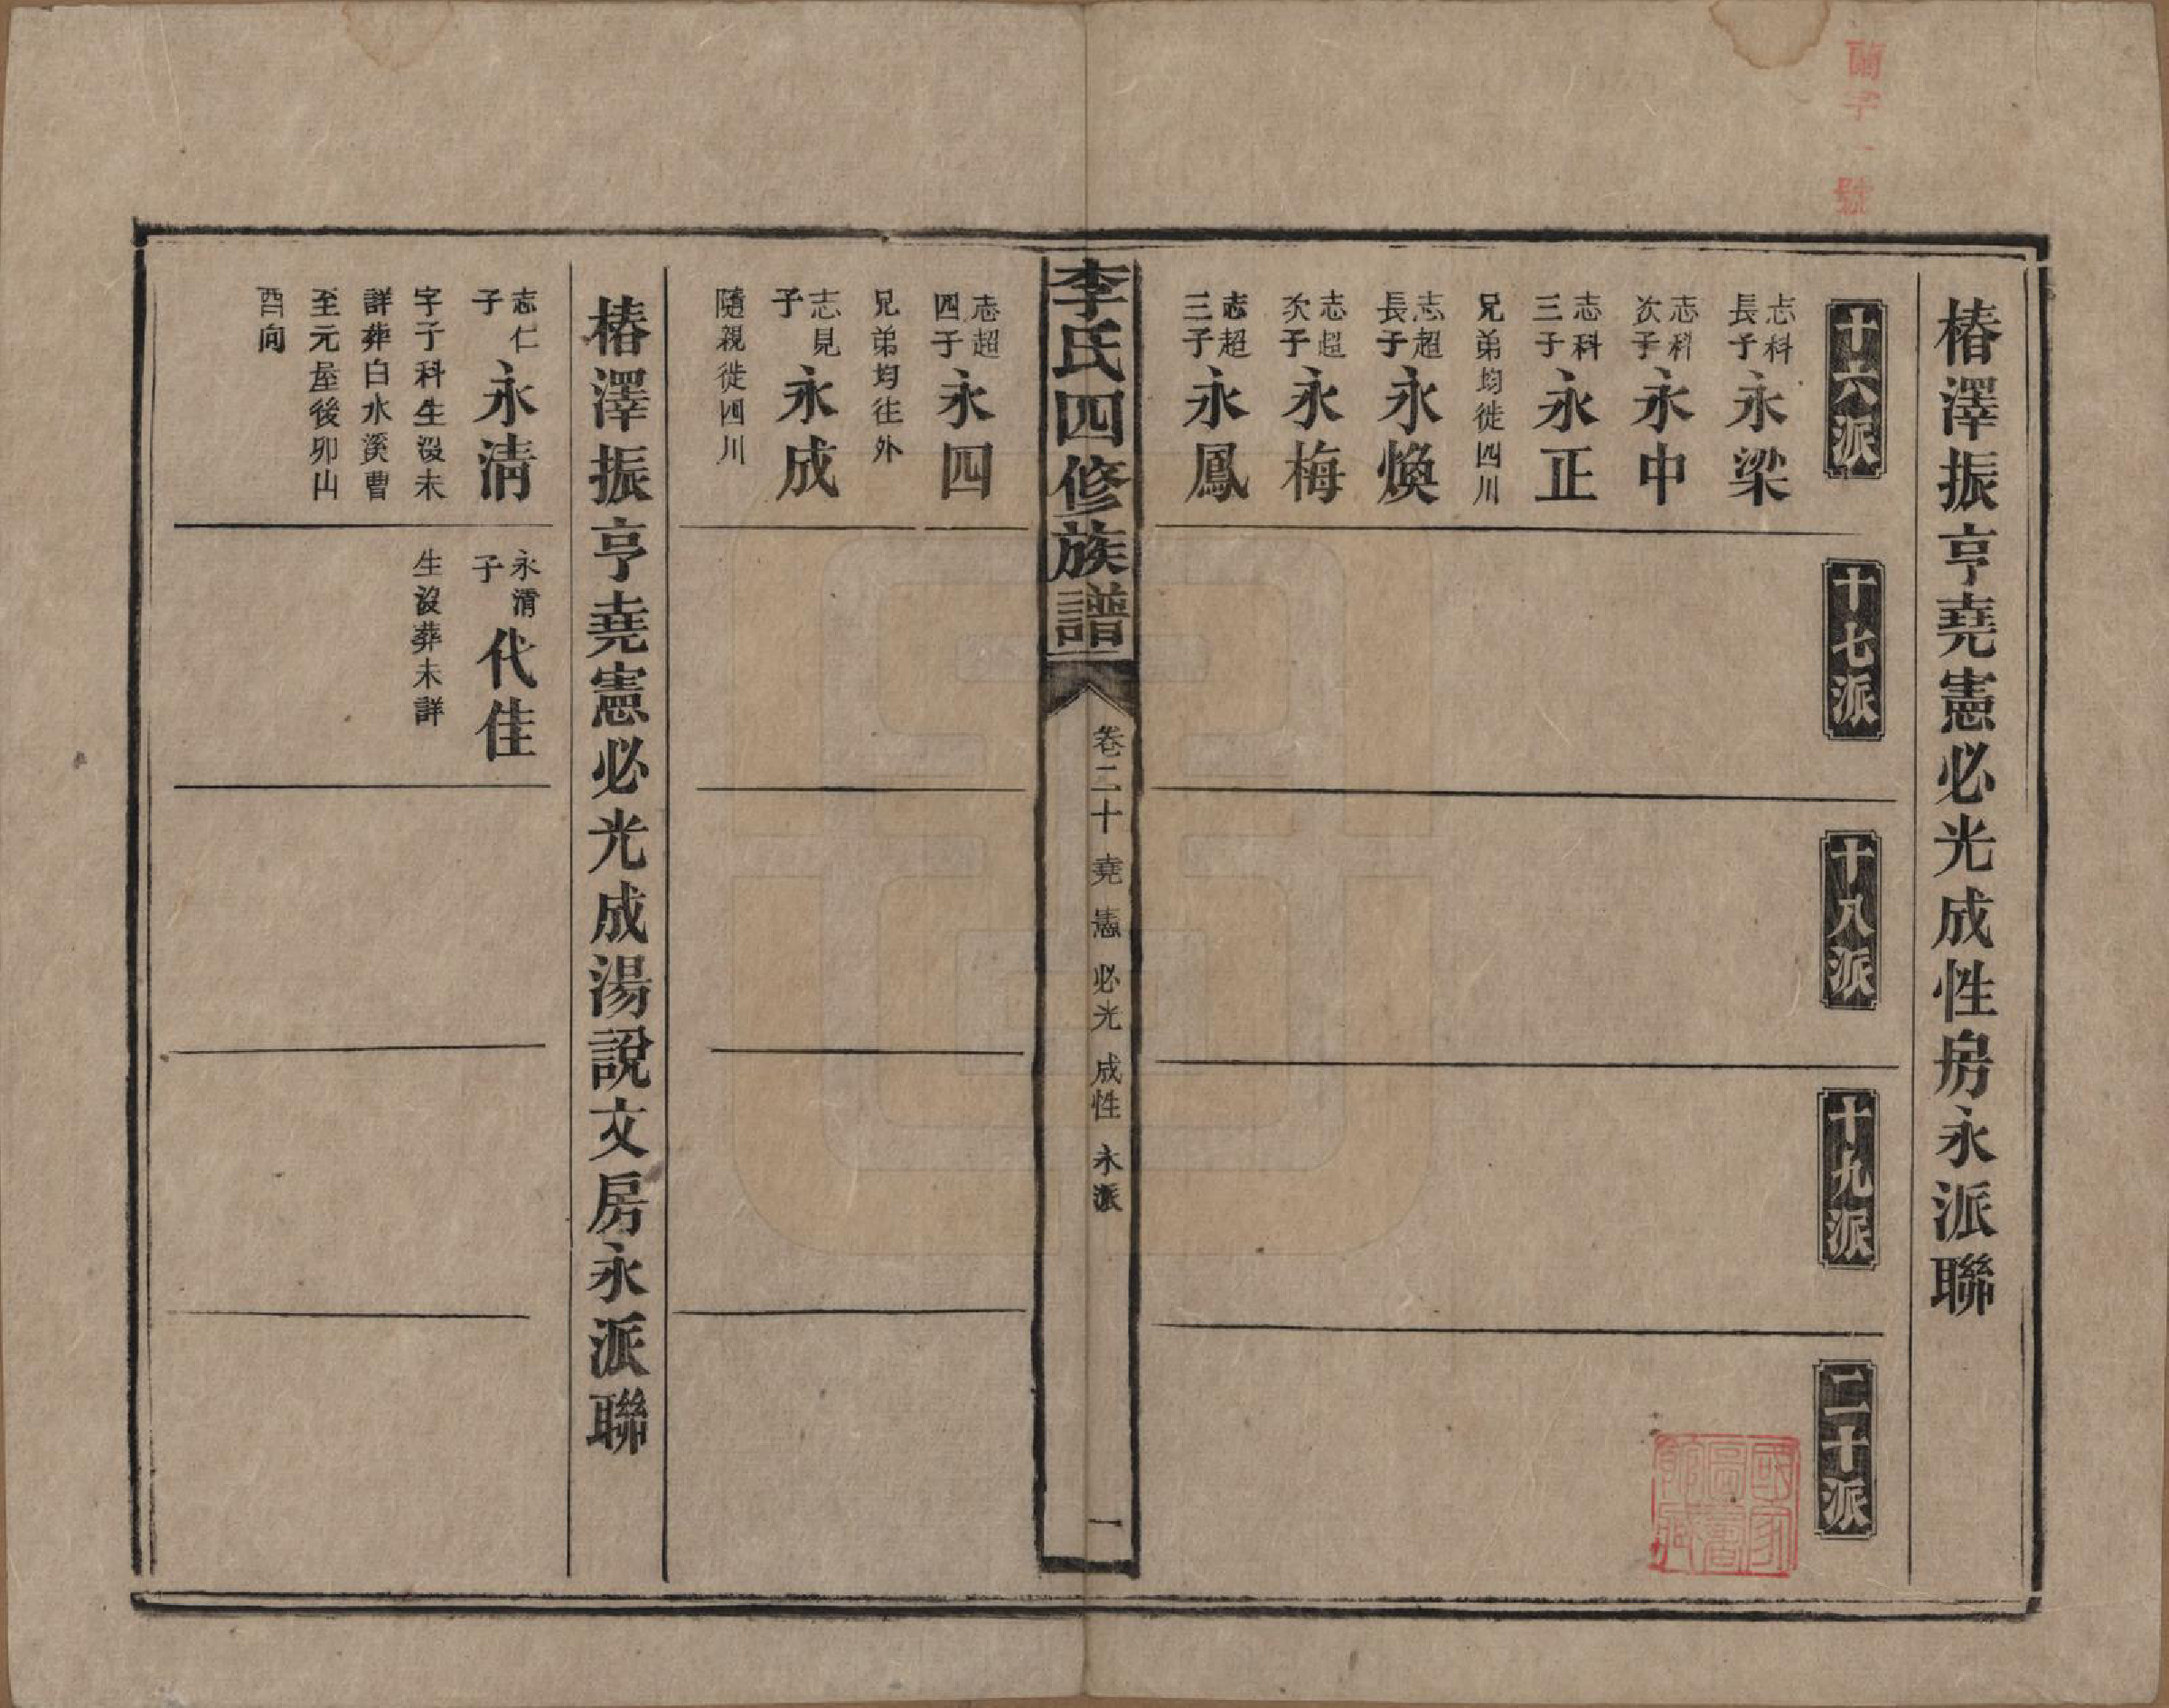 蘭字一號
椿澤振亨堯憲必光成性房永派聯
十六派
十七派
十八派
十九派
二十派
志科長子永梁
志科次子永中
志科三子永正
兄弟均徙四川
志超長子永煥
志超次子永梅
志超三子永鳳
李氏四修族譜
卷二十 堯 憲 必光 成性 永派
一
志超四子永四
兄弟均往外
志見子永成
隨親徙四川
椿澤振亨堯憲必光成湯說文房永派聯
志仁子永清
字子科生沒未
詳葬白水溪曹
至元屋後卯山
酉向
永清子代佳
生沒葬未詳